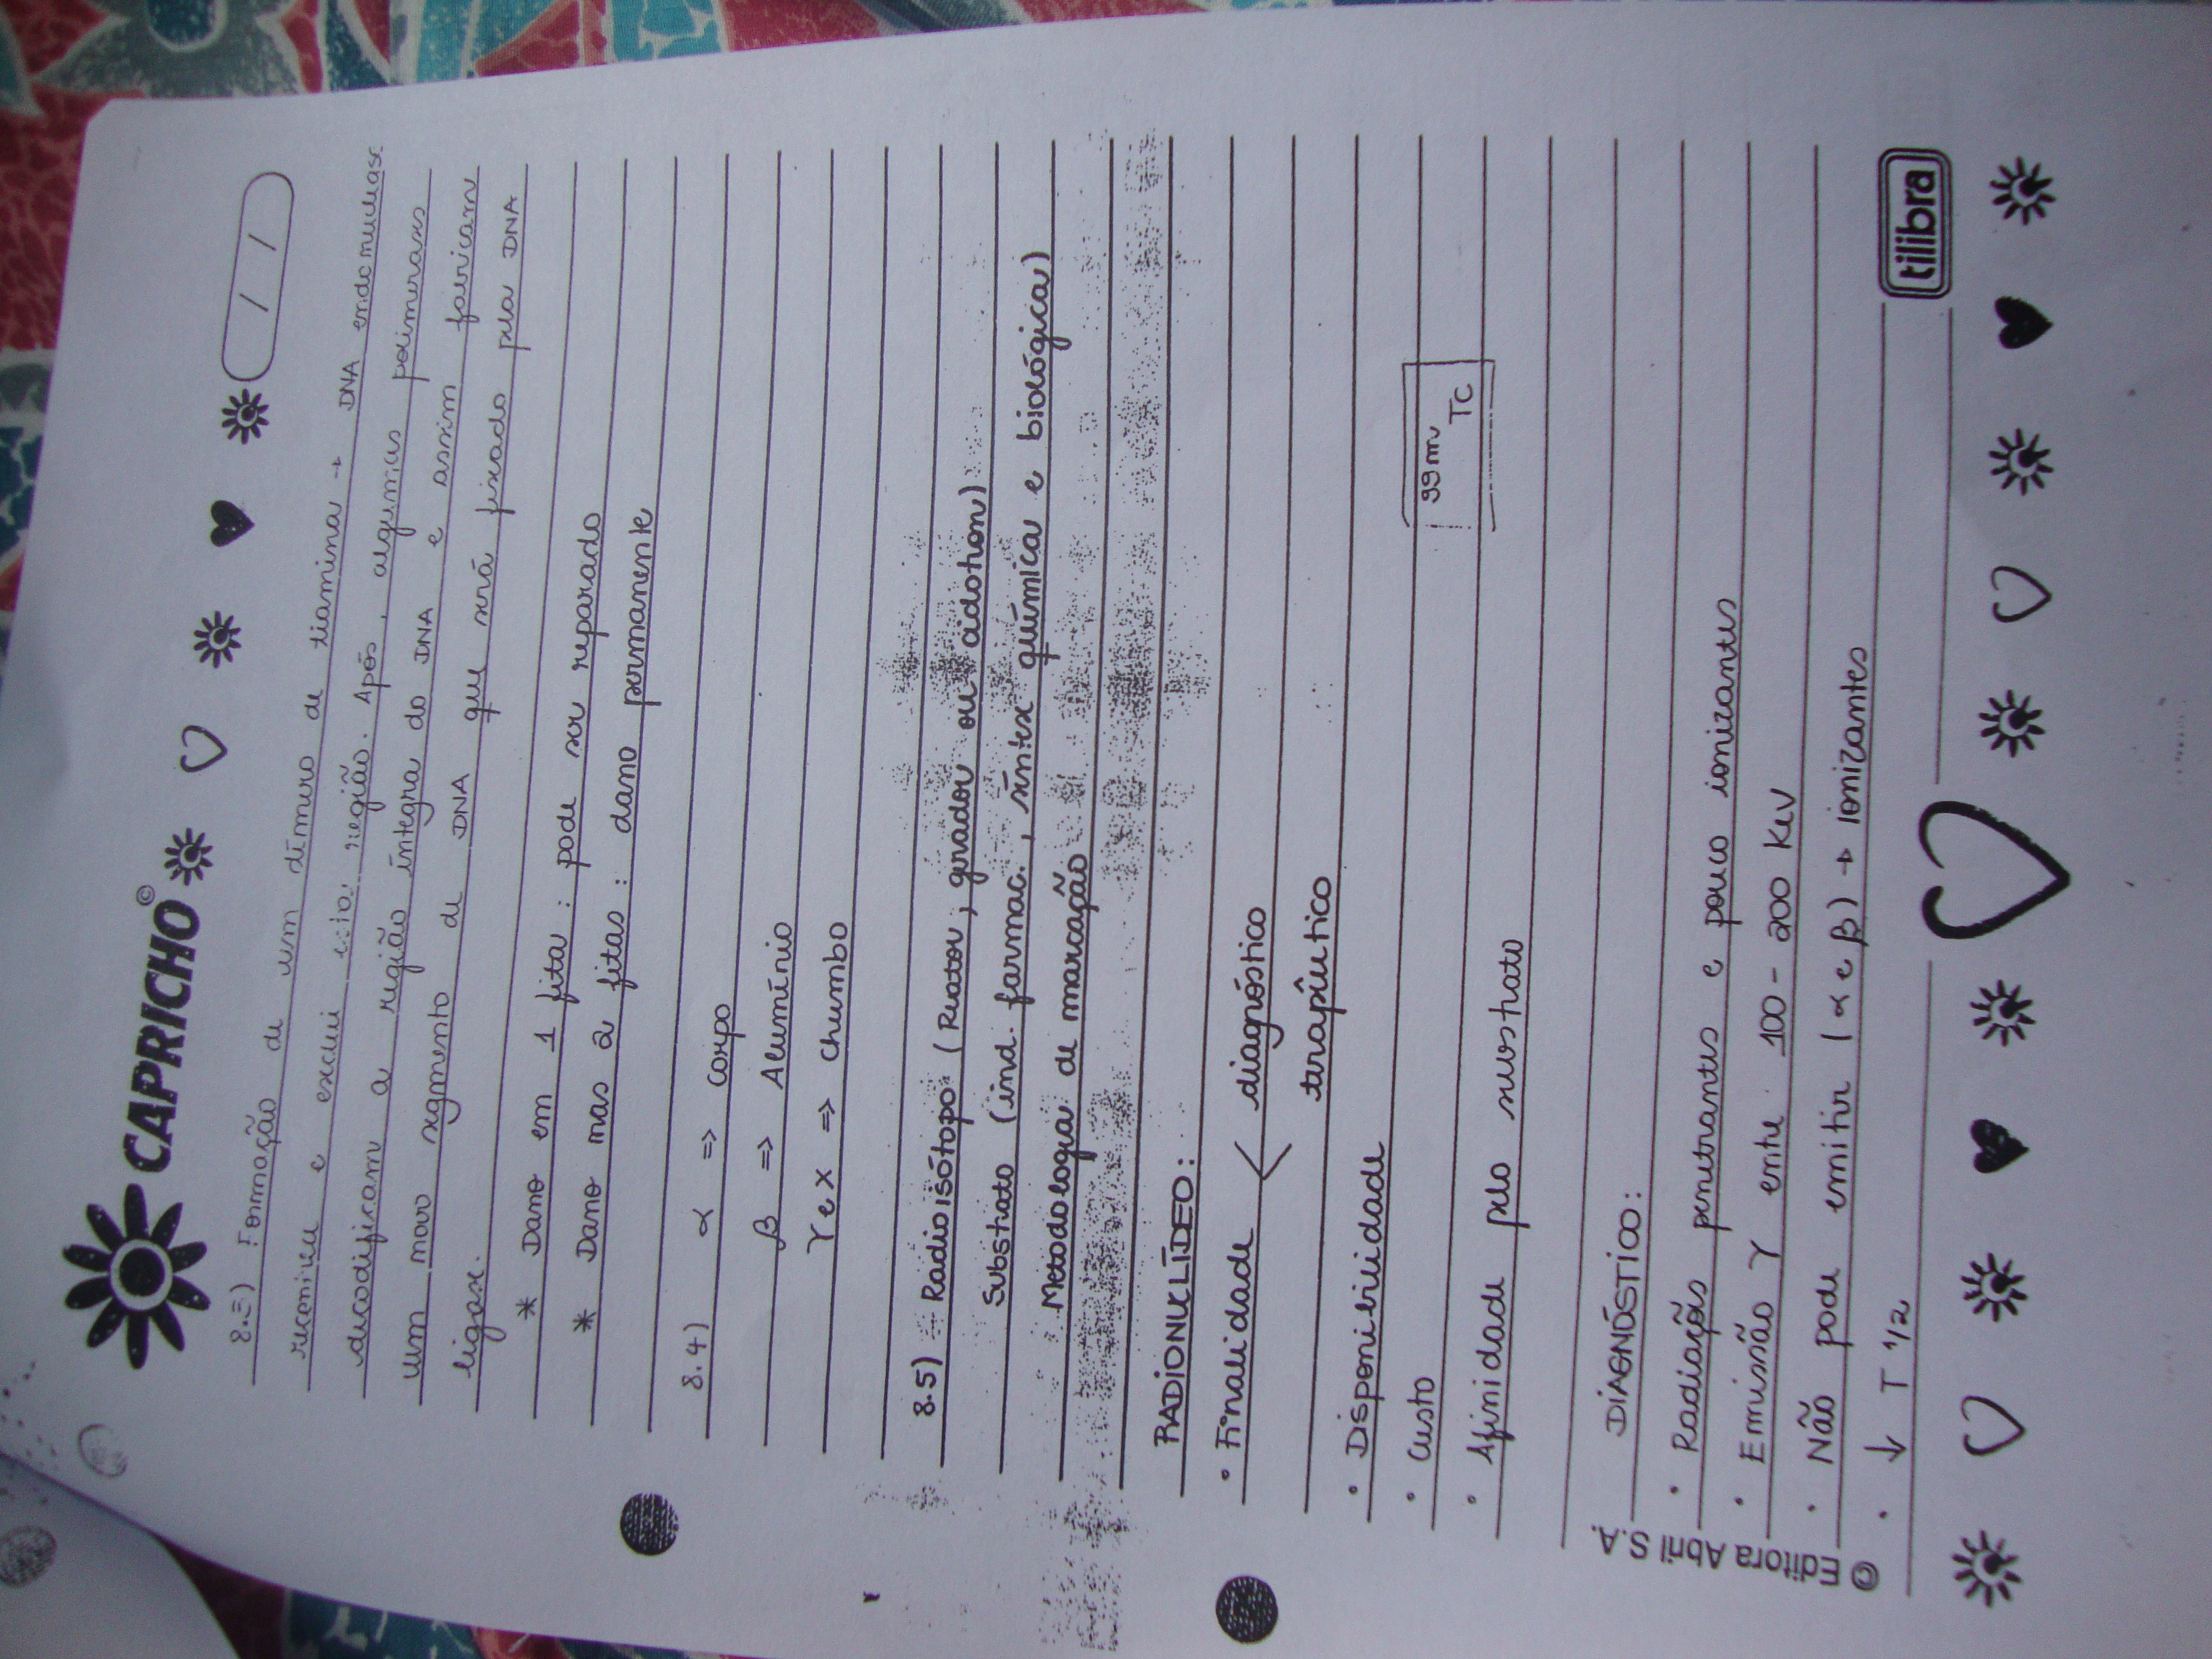 CAPRICHO©
/ /
8.3) Formação de um dímero de tiamina → DNA endonuclease
reconhece e exclui esta região. Após, algumas polimerases
decodificam a região íntegra do DNA e assim fabricam
um novo segmento de DNA que será fixado pela DNA
ligase.
* Dano em 1 fita: pode ser reparado
* Dano nas 2 fitas: dano permanente
8.4) α => corpo
β => Alumínio
γ e X => chumbo
8.5) Radioisótopo (Reator, gerador ou cíclotron)
Substrato (ind. farmac., síntese química e biológica)
Metodologia de marcação
RADIONUCLÍDEO:
• Finalidade < diagnóstico
terapêutico
• Disponibilidade
• Custo
99m Tc
• Afinidade pelo substrato
DIAGNÓSTICO:
• Radiações penetrantes e pouco ionizantes
• Emissão γ entre 100 - 200 KeV
• Não pode emitir (α e β) → ionizantes
• ↓ T 1/2
© Editora Abril S.A.
tilibra